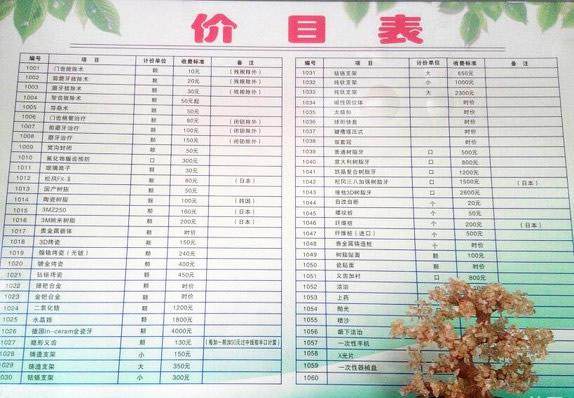 价目表
编号 项目 计价单位 收费标准 备注
1001 门齿拔除术 颗 10元 (残根除外)
1002 前磨牙拔除术 颗 20元 (残根除外)
1003 磨牙拔除术 颗 30元 (残根除外)
1004 智齿拔除术 颗 50元起
1005 颗 50元
1006 门齿根管治疗 颗 80元 (闭锁除外)
1007 前磨牙治疗 颗 100元 (闭锁除外)
1008 磨牙治疗 颗 150元 (闭锁除外)
1009 窝沟封闭 颗 50元
1010 口 300元
1011 玻璃离子 颗 30元
1012 松风FX-Ⅱ 颗 80元 (日本)
1013 国产树脂 颗 50元
1014 陶瓷树脂 颗 100元 (韩国)
1015 3MZ250 颗 160元 (日本)
1016 3M纳米树脂 颗 200元 (日本)
1017 贵金属嵌体 颗 时价
1018 3D烤瓷 颗 150元
1019 镍铬烤瓷(无铍) 颗 240元
1020 镀金烤瓷 颗 400元
1021 钴铬烤瓷 颗 450元
1022 锗钯合金 颗 时价
1023 金钯合金 颗 时价
1024 二氧化锆 颗 1200元
1025 水晶娃 颗 1800元
1026 德国in-ceram全瓷牙 颗 4000元
1027 隐形义齿 颗 130元
1028 铸造支架 小 150元
1029 铸造支架 大 350元
1030 钴铬支架 小 300元
编号 项目 计价单位 收费标准 备注
1031 钴铬支架 大 650元
1032 纯钛支架 小 1000元
1033 纯钛支架 大 2300元
1034 磁性固位体 时价
1035 太极扣 时价
1036 球形附着 时价
1037 时价
1038 套筒冠 时价
1039 普通树脂牙 口 500元
1040 意大利树脂牙 口 800元
1041 口 1200元
1042 口 1500元 (日本)
1043 口 2600元
1044 自攻自断 个 20元
1045 螺纹桩 个 50元
1046 纤维桩 个 200元 (日本)
1047 纤维桩(进口) 个 500元
1048 贵金属铸造桩 个 时价
1049 树脂贴面 颗 100元
1050 瓷贴面 颗
1051 义齿加衬 口 800元
1052 洁治
1053 上药
1054 抛光
1055 喷沙
1056 龈下洁治
1057 一次性手机
1058 X光片
1059 一次性器械盘
1060